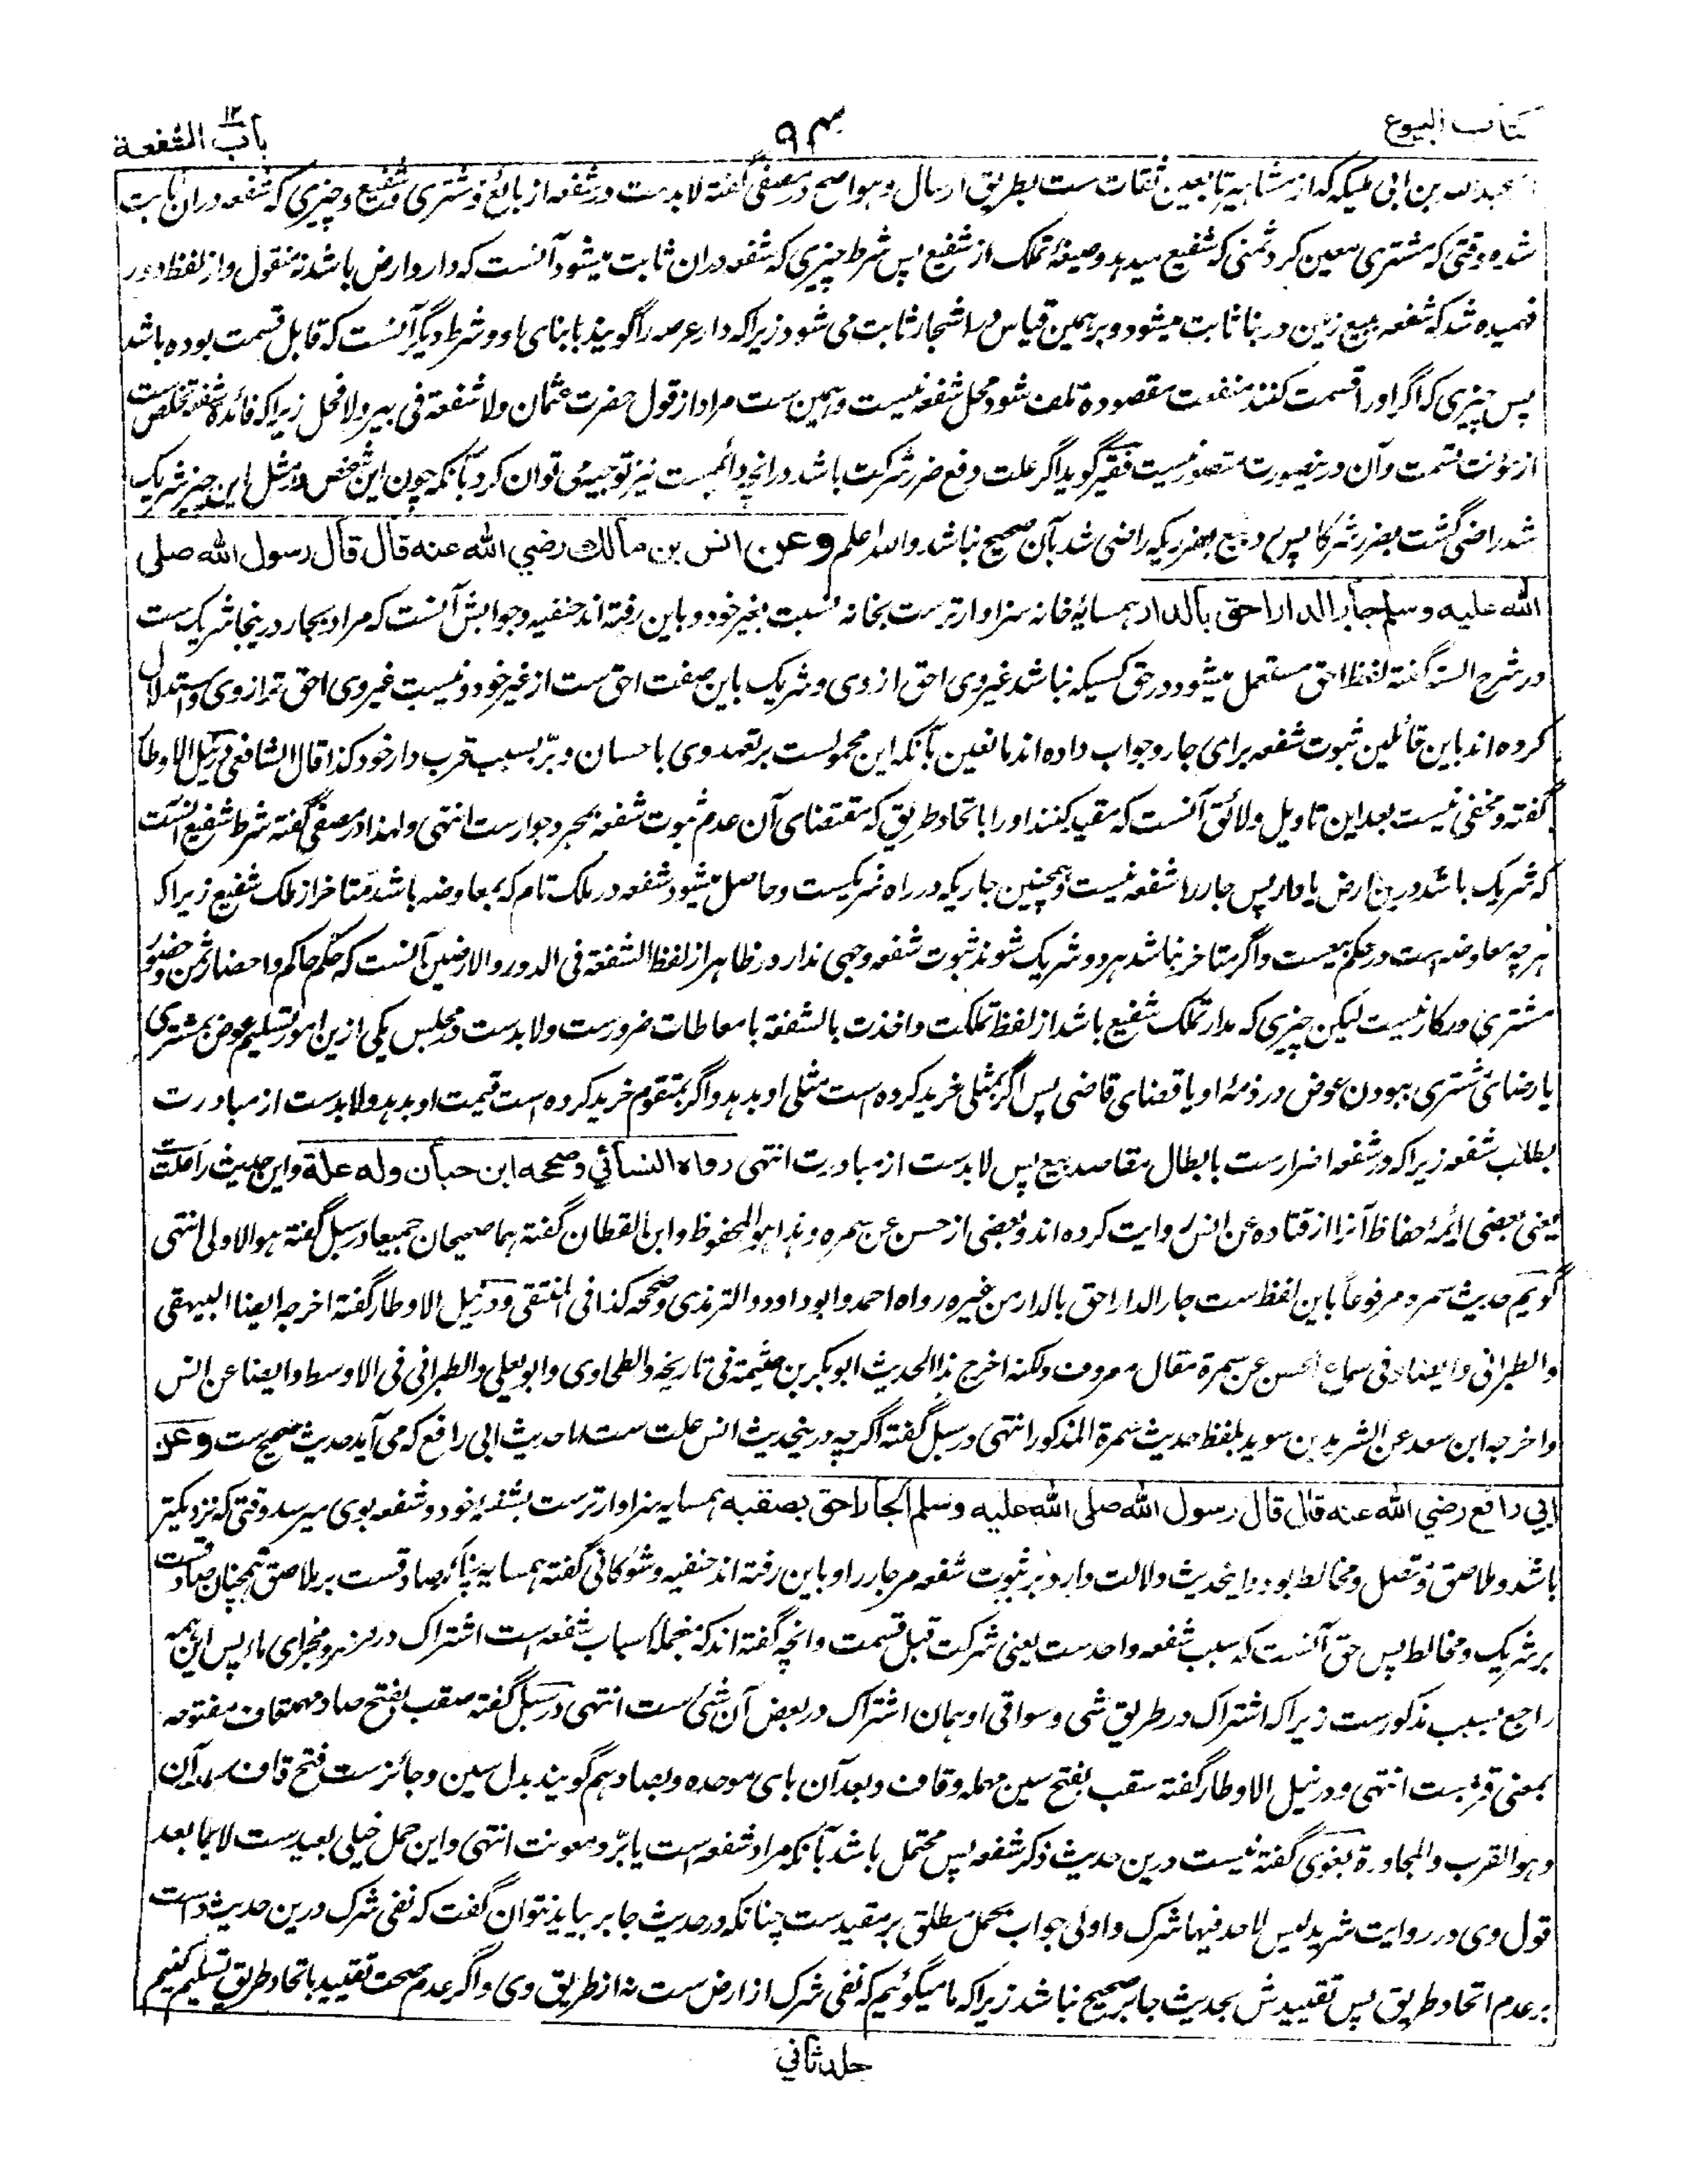 كتاب البيوع
۹۴
باب الشفعة
عبدالله بن ابی ملیکه که از مشاهیر تابعین ثقات ست بطریق ارسال و هو اصح در مصفی گفته لا بدست در شفعه از بائع و مشتری و شفیع و چیزی که شفعه دران ثابت
شده وقتی که مشتری معین کرد ثمنی که شفیع میدهد و صیغهٔ تملک از شفیع پس شرط چیزی که شفعه دران ثابت میشود آنست که دار و ارض باشد نه منقول و از لفظ دور
فهمیده شد که شفعه ببیع زمین در بنا ثابت میشود و بر همین قیاس در اشجار ثابت می شود زیرا که دار عرصه را گویند با بنای او و شرط دیگر آنست که قابل قسمت بوده باشد
پس چیزی که اگر او را قسمت کنند منفعت مقصوده تلف شود محل شفعه نیست و همین ست مراد از قول حضرت عثمان ولا شفعة فی بیر ولا فحل زیرا که فائدهٔ شفعه تخلص ست
از مؤنت قسمت و آن درینصورت متصور نیست فقیر گوید اگر علت دفع ضرر شرکت باشد در انچه دائمیست نیز توجیه می توان کرد بآنکه چون این شخص در مثل این چیز شریک
شد راضی گشت بضرر شرکا پس دفع ضرریکه راضی شد بآن صحیح نباشد والله اعلم وعن انس بن مالك رضي الله عنه قال قال رسول الله صلى
الله عليه وسلم جار الدار احق بالدار همسایهٔ خانه سزاوارترست بخانه نسبت بغیر خود و باین رفته اند حنفیه و جوابش آنست که مراد بجار درینجا شریک ست
در شرح السنه گفته لفظ احق مستعمل میشود در حق کسیکه نباشد غیر وی احق از وی و شریک باین صفت احق ست از غیر خود و نیست غیر وی احق تر از وی و استدلال
کرده اند باین قائلین ثبوت شفعه برای جار و جواب داده اند مانعین بآنکه این محمولست بر تعهد وی باحسان و برّ بسبب قرب دار خود کذا قال الشافعی در نیل الاوطار
گفته و مخفی نیست بعد این تاویل و لائق آنست که مقید کنند او را باتحاد طریق که مقتضای آن عدم ثبوت شفعه بمجرد جوارست انتهی ولهذا در مصفی گفته شرط شفیع آنست
که شریک باشد درین ارض یا دار پس جار را شفعه نیست و همچنین جاریکه در راه شریکست و حاصل میشود شفعه در ملک تام که بمعاوضه باشد متاخر از ملک شفیع زیرا که
هر چه معاوضه است در حکم بیع ست و اگر متاخر نباشد هر دو شریک شوند ثبوت شفعه وجهی ندارد و ظاهر از لفظ الشفعة فی الدور والارضین آنست که حکم حاکم و احضار ثمن و حضور
مشتری درکار نیست لیکن چیزی که مدار تملک شفیع باشد از لفظ تملکت و اخذت بالشفعة یا معاطات ضرورست ولا بدست در مجلس یکی ازین امور تسلیم عوض بمشتری
یا رضای مشتری ببودن عوض در ذمهٔ او یا قضای قاضی پس اگر بمثلی خرید کرده است مثلی او بدهد و اگر بمتقوم خرید کرده است قیمت او بدهد ولا بدست از مبادرت
بطلب شفعه زیرا که در شفعه اضرارست بابطال مقاصد بیع پس لا بدست از مبادرت انتهی رواه النسائي وصححه ابن حبان وله علة و این حدیث را علت ست
یعنی بعضی ائمهٔ حفاظ آنرا از قتاده عن انس روایت کرده اند و بعضی از حسن عن سمره و هذا هو المحفوظ و ابن القطان گفته هما صحیحان جمیعا در سبل گفته هو الاولی انتهی
گویم حدیث سمره مرفوعاً باین لفظ ست جار الدار احق بالدار من غیره رواه احمد وابوداود والترمذی وصححه کذا فی المنتقی و در نیل الاوطار گفته اخرجه ایضا البیهقی
والطبرانی و ایضا و فی سماع الحسن عن سمرة مقال معروف ولکنه اخرج هذا الحدیث ابو بکر بن خیثمة فی تاریخه والطحاوی وابو یعلی والطبرانی فی الاوسط وایضا عن انس
واخرجه ابن سعد عن الشرید بن سوید بلفظ حدیث سمرة المذکور انتهی در سبل گفته اگر چه درینحدیث انس علت ست اما حدیث ابی رافع که می آید حدیث صحیح ست وعن
ابي رافع رضي الله عنه قال قال رسول الله صلى الله عليه وسلم الجار احق بصقبه همسایه سزاوارترست بشفعه خود و شفعه بوی میرسد وقتی که نزدیکتر
باشد و ملاصق و متصل و مخالط بود و اینحدیث دلالت دارد بر ثبوت شفعه مر جار را و باین رفته اند حنفیه و شوکانی گفته همسایه چنانکه صادقست بر ملاصق همچنان صادقست
بر شریک و مخالط پس حق آنست که سبب شفعه واحدست یعنی شرکت قبل قسمت و انچه گفته اند که منجملهٔ اسباب شفعه است اشتراک در نهر و مجرای ماء پس این همه
راجع بسبب مذکورست زیرا که اشتراک در طریق شی و سواقی او همان اشتراک در بعض آن شی ست انتهی در سبل گفته صقب بفتح صاد مهمله و قاف مفتوحه
بمعنی قربست انتهی و در نیل الاوطار گفته سقب بفتح سین مهمله و قاف و بعد آن بای موحده و بصاد هم گویند بدل سین و جائزست فتح قاف و اسکان آن
و هو القرب والمجاورة بغوی گفته نیست درین حدیث ذکر شفعه پس محتمل باشد بآنکه مراد شفعه است یا برّ و معونت انتهی و این حمل خیلی بعیدست لا سیما بعد
قول وی در روایت شرید لیس لاحد فیها شرک و اولی جواب بحمل مطلق بر مقیدست چنانکه در حدیث جابر بیاید نتوان گفت که نفی شرک درین حدیث دال ست
بر عدم اتحاد طریق پس تقییدش بحدیث جابر صحیح نباشد زیرا که ما میگوئیم که نفی شرک از ارض ست نه از طریق وی و اگر عدم صحت تقیید باتحاد طریق تسلیم کنیم
جلد ثاني